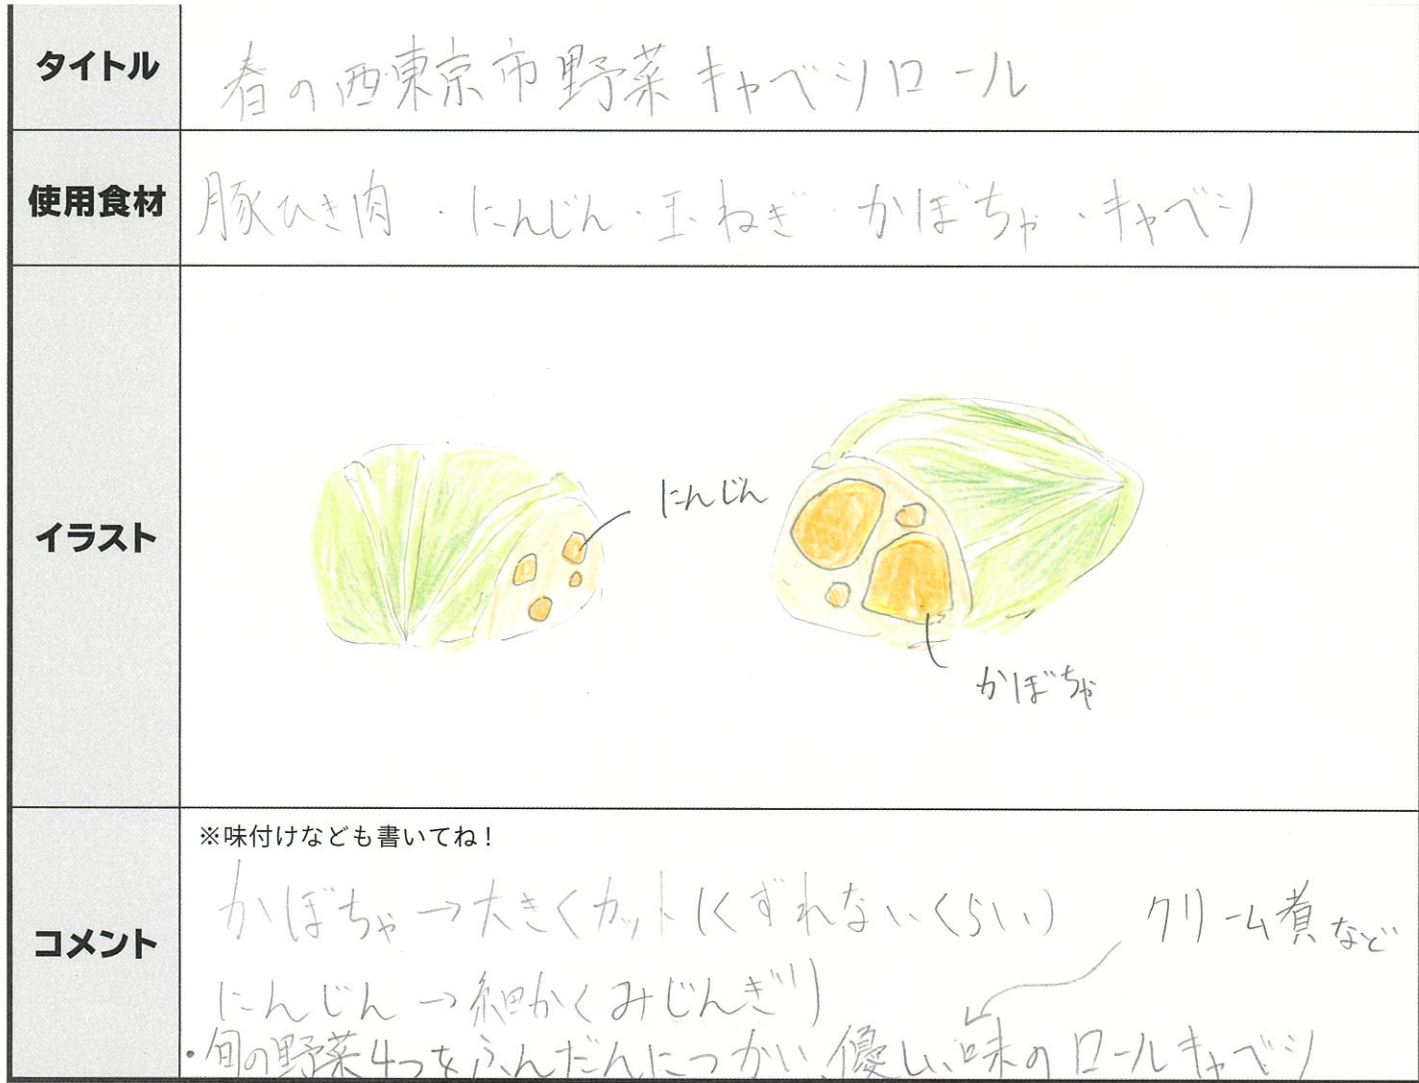 タイトル
春の西東京市野菜キャベツロール
使用食材
豚ひき肉・にんじん・玉ねぎ・かぼちゃ・キャベツ
イラスト
にんじん
かぼちゃ
コメント
※味付けなども書いてね！
かぼちゃ→大きくカット(くずれないくらい)
クリーム煮など
にんじん→細かくみじんぎり
・旬の野菜4つをふんだんにつかい、優しい味のロールキャベツ